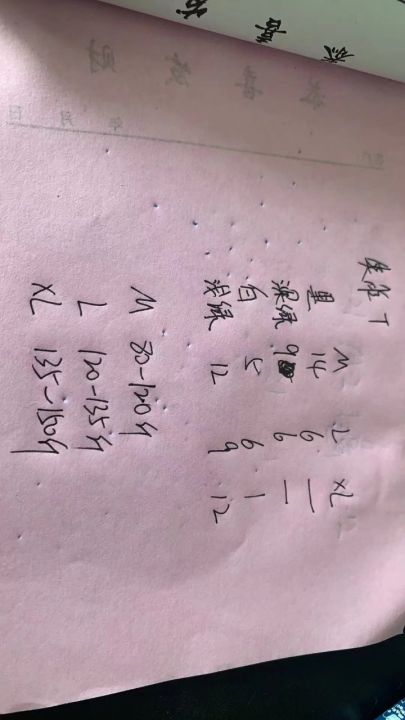 T
M L XL
黑 14 6 一
深绿 9 6 一
白 5 6 1
浅绿 12 9 12
M 80-120斤
L 120-135斤
XL 135-150斤